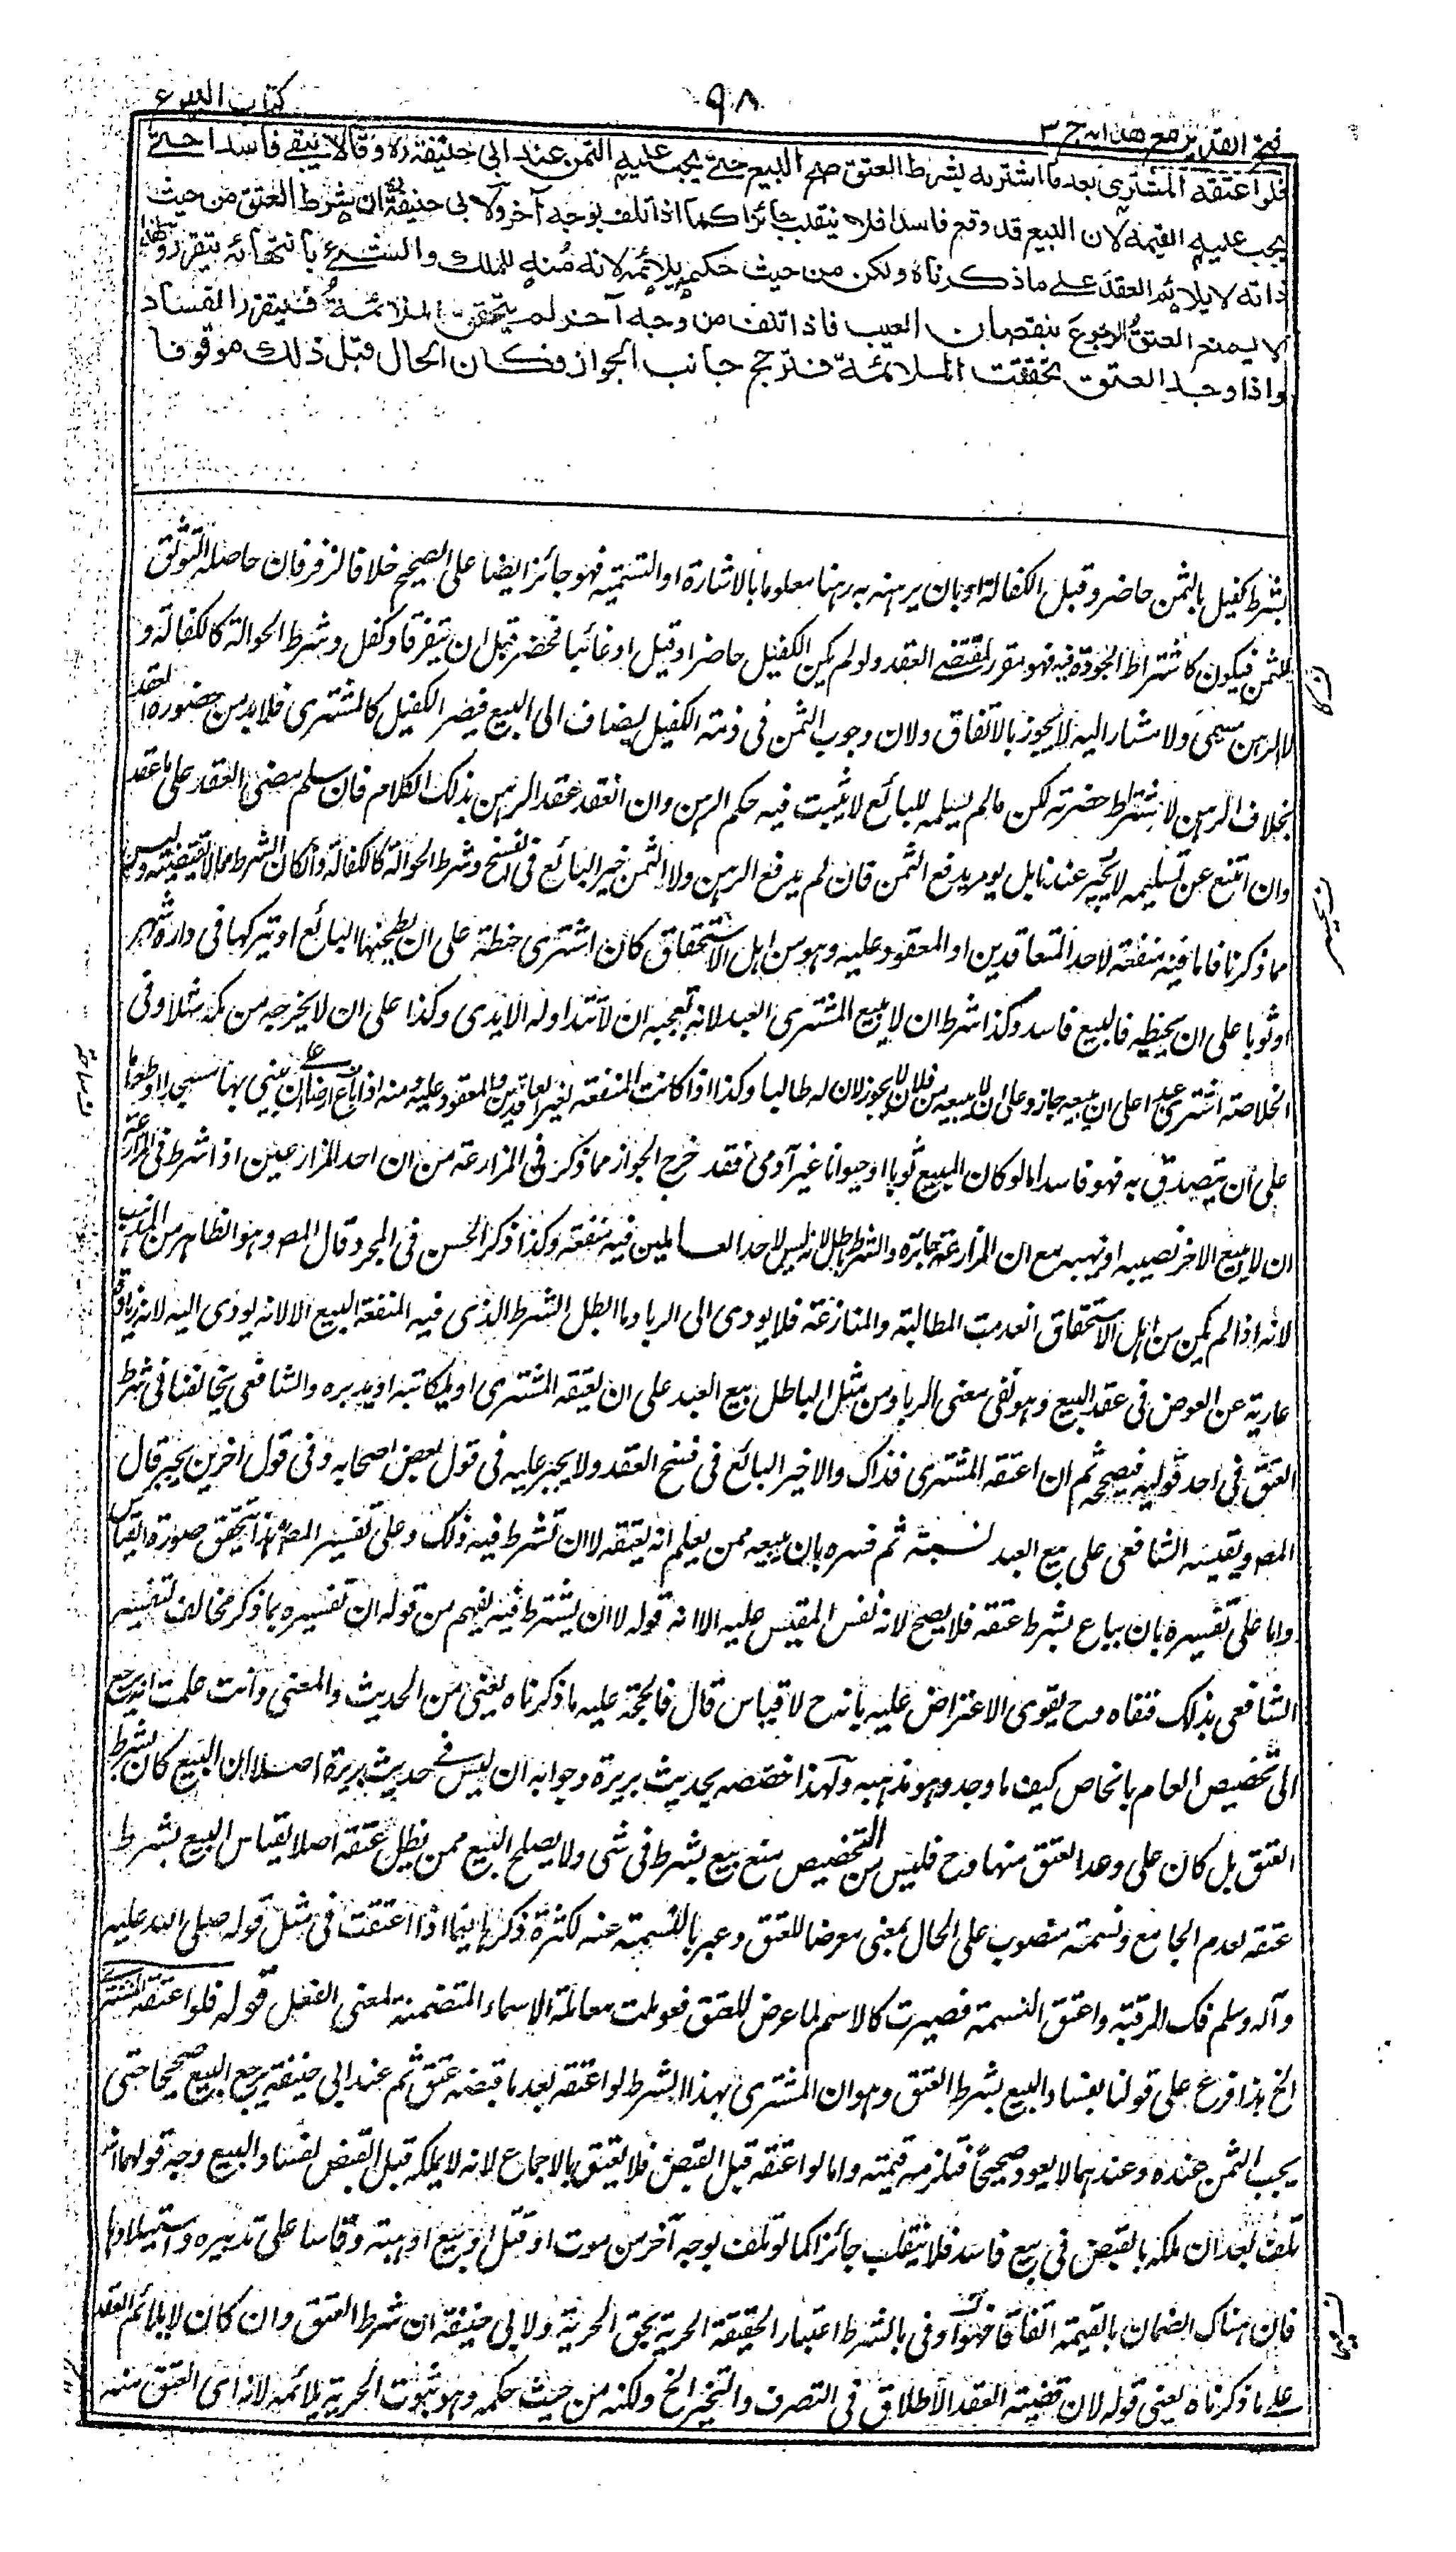 فتح القدير مع هدايه ج ٣
٩٨
كتاب البيوع
فلو اعتقه المشترى بعد ما اشتراه بشرط العتق صح البيع حتى يجب عليه الثمن عند ابى حنيفة ره وقالا يبقى فاسدا حتى
يجب عليه القيمة لان البيع قد وقع فاسدا فلا ينقلب جائزا كما اذا تلف بوجه آخر ولابى حنيفة ان شرط العتق من حيث
ذاته لا يلائم العقد على ما ذكرناه ولكن من حيث حكمه يلائمه لانه منه للملك والشئ بانتهائه يتقرر ولهذا
لا يمنع العتق الرجوع بنقصان العيب فاذا تلف من وجه آخر لم يتحقق الملائمة فيتقرر الفساد
واذا وجد العتق تحققت الملائمة فترجح جانب الجواز فكان الحال قبل ذلك موقوفا
بشرط كفيل بالثمن حاضر وقبل الكفالة او بان يرهنه به رهنا معلوما بالاشارة او التسمية فهو جائز ايضا على الصحيح خلافا لزفر فان حاصله التوثق
للثمن فيكون كاشتراط الجودة فيه فهو مقرر لمقتضى العقد ولو لم يكن الكفيل حاضرا او قبل او غائبا فحضر قبل ان يتفرقا وكفل وشرط الحوالة كالكفالة ولو
لا الرهن مسمى ولا مشار اليه لا يجوز بالاتفاق ولان وجوب الثمن فى ذمة الكفيل يضاف الى البيع فيصير الكفيل كالمشترى فلا بد من حضوره العقد
بخلاف الرهن لا يشترط حضرته لكن مالم يسلمه للبائع لا يثبت فيه حكم الرهن وان انعقد عقد الرهن بذلك الكلام فان سلم مضى العقد على ما عقد
وان امتنع عن تسليمه لا يجبر عندنا بل يومر بدفع الثمن فان لم يدفع الرهن ولا الثمن خير البائع فى الفسخ وشرط الحوالة كالكفالة وان كان الشرط مما لا يقتضيه وليس
مما ذكرنا فاما فيه منفعة لاحد المتعاقدين او المعقود عليه وهو من اهل الاستحقاق كان اشترى حنطة على ان يطحنها البائع او يتركها فى داره شهرا
او ثوبا على ان يخيطه فالبيع فاسد وكذا شرط ان لا يبيع المشترى العبد لانه يعجبه ان لا تتداوله الايدى وكذا على ان لا يخرجه من مكة مثلا وفى
الخلاصة اشترى عبدا على ان يبيعه جاز وعلى ان لا يبيعه من فلان لا يجوز لان له طالبا وكذا اذا كانت المنفعة لغير العاقدين والمعقود عليه ومنه اذا باع ارضا على ان يبنى بها مسجدا او طعاما
على ان يتصدق به فهو فاسد اما لو كان المبيع ثوبا او حيوانا غير آدمى فقد خرج الجواز مما ذكر فى المزارعة من ان احد المزارعين اذا شرط فى المزارعة
ان لا يبيع الاخر نصيبه او يهبه مع ان المزارعة جائزة والشرط باطل لانه ليس لاحد العاملين فيه منفعة وكذا ذكر الحسن فى المجرد قال المص وهو الظاهر من المذهب
لانه اذا لم يكن من اهل الاستحقاق انعدمت المطالبة والمنازعة فلا يودى الى الربا وما ابطل الشرط الذى فيه المنفعة البيع الا لانه يودى اليه لانه زيادة
عارية عن العوض فى عقد البيع وهو نفى معنى الربا ومن مثل الباطل بيع العبد على ان يعتقه المشترى او يكاتبه او يدبره والشافعى يخالفنا فى شرط
العتق فى احد قوليه فيصححه ثم ان اعتقه المشترى فذاك والا خير البائع فى فسخ العقد ولا يجبر عليه فى قول بعض اصحابه وفى قول اخرين يجبر قال
المص ويقيسه الشافعى على بيع العبد نسمة ثم فسره بان يبيعه ممن يعلم انه يعتقه لا ان تشترط فيه ذلك وعلى تفسير المص هذا يتحقق صورة القياس
واما على تفسيره بان يباع بشرط عتقه فلا يصح لانه نفس المقيس عليه الا انه قوله لا ان يشترط فيه يفهم من قوله ان تفسيره بما ذكر مخالف لتفسير
الشافعى بذلك فنفاه وح يقوى الاعتراض عليه بانه ح لا قياس قال فالحجة عليه ما ذكرناه يعنى من الحديث والمعنى وانت علمت انه يرجع
الى تخصيص العام بالخاص كيف ما وجد وهو مذهبه ولهذا خصصه بحديث بريرة وجوابه ان ليس فى حديث بريرة اصلا ان البيع كان بشرط
العتق بل كان على وعد العتق منها وح فليس من التخصيص منع بيع بشرط فى شى ولا يصلح البيع ممن يظن عتقه اصلا لقياس البيع بشرط
عتقه لعدم الجامع ونسمة منصوب على الحال بمعنى معرضا للعتق وعبر بالنسمة عنه لكثرة ذكرها فيما اذا اعتقت فى مثل قوله صلى الله عليه
وآله وسلم فك الرقبة واعتق النسمة فصيرت كالاسم لما عرض للعتق فعوملت معاملة الاسماء المتضمنة لمعنى الفعل قوله فلو اعتقه المشترى
الخ هذا فرع على قولنا بفساد البيع بشرط العتق وهو ان المشترى بهذا الشرط لو اعتقه بعد ما قبضه عتق ثم عند ابى حنيفة يرجع البيع صحيحا حتى
يجب الثمن عنده وعندهما لا يعود صحيحا فتلزمه قيمته واما لو اعتقه قبل القبض فلا يعتق بالاجماع لانه لا يملكه قبل القبض لفساد البيع وجه قولهما انه
تلف بعد ان ملكه بالقبض فى بيع فاسد فلا ينقلب جائزا كما لو تلف بوجه آخر من موت او قتل او بيع او هبة وقاسا على تدبيره واستيلادها
فان هناك الضمان بالقيمة اتفاقا فهذا وفى بالشرط اعتبار الحقيقة الحرية بحق الحرية ولابى حنيفة ان شرط العتق وان كان لا يلائم العقد
على ما ذكرناه يعنى قوله لان قضية العقد الاطلاق فى التصرف والتخير الخ ولكنه من حيث حكمه وهو ثبوت الحرية يلائمه لانه اى العتق منه